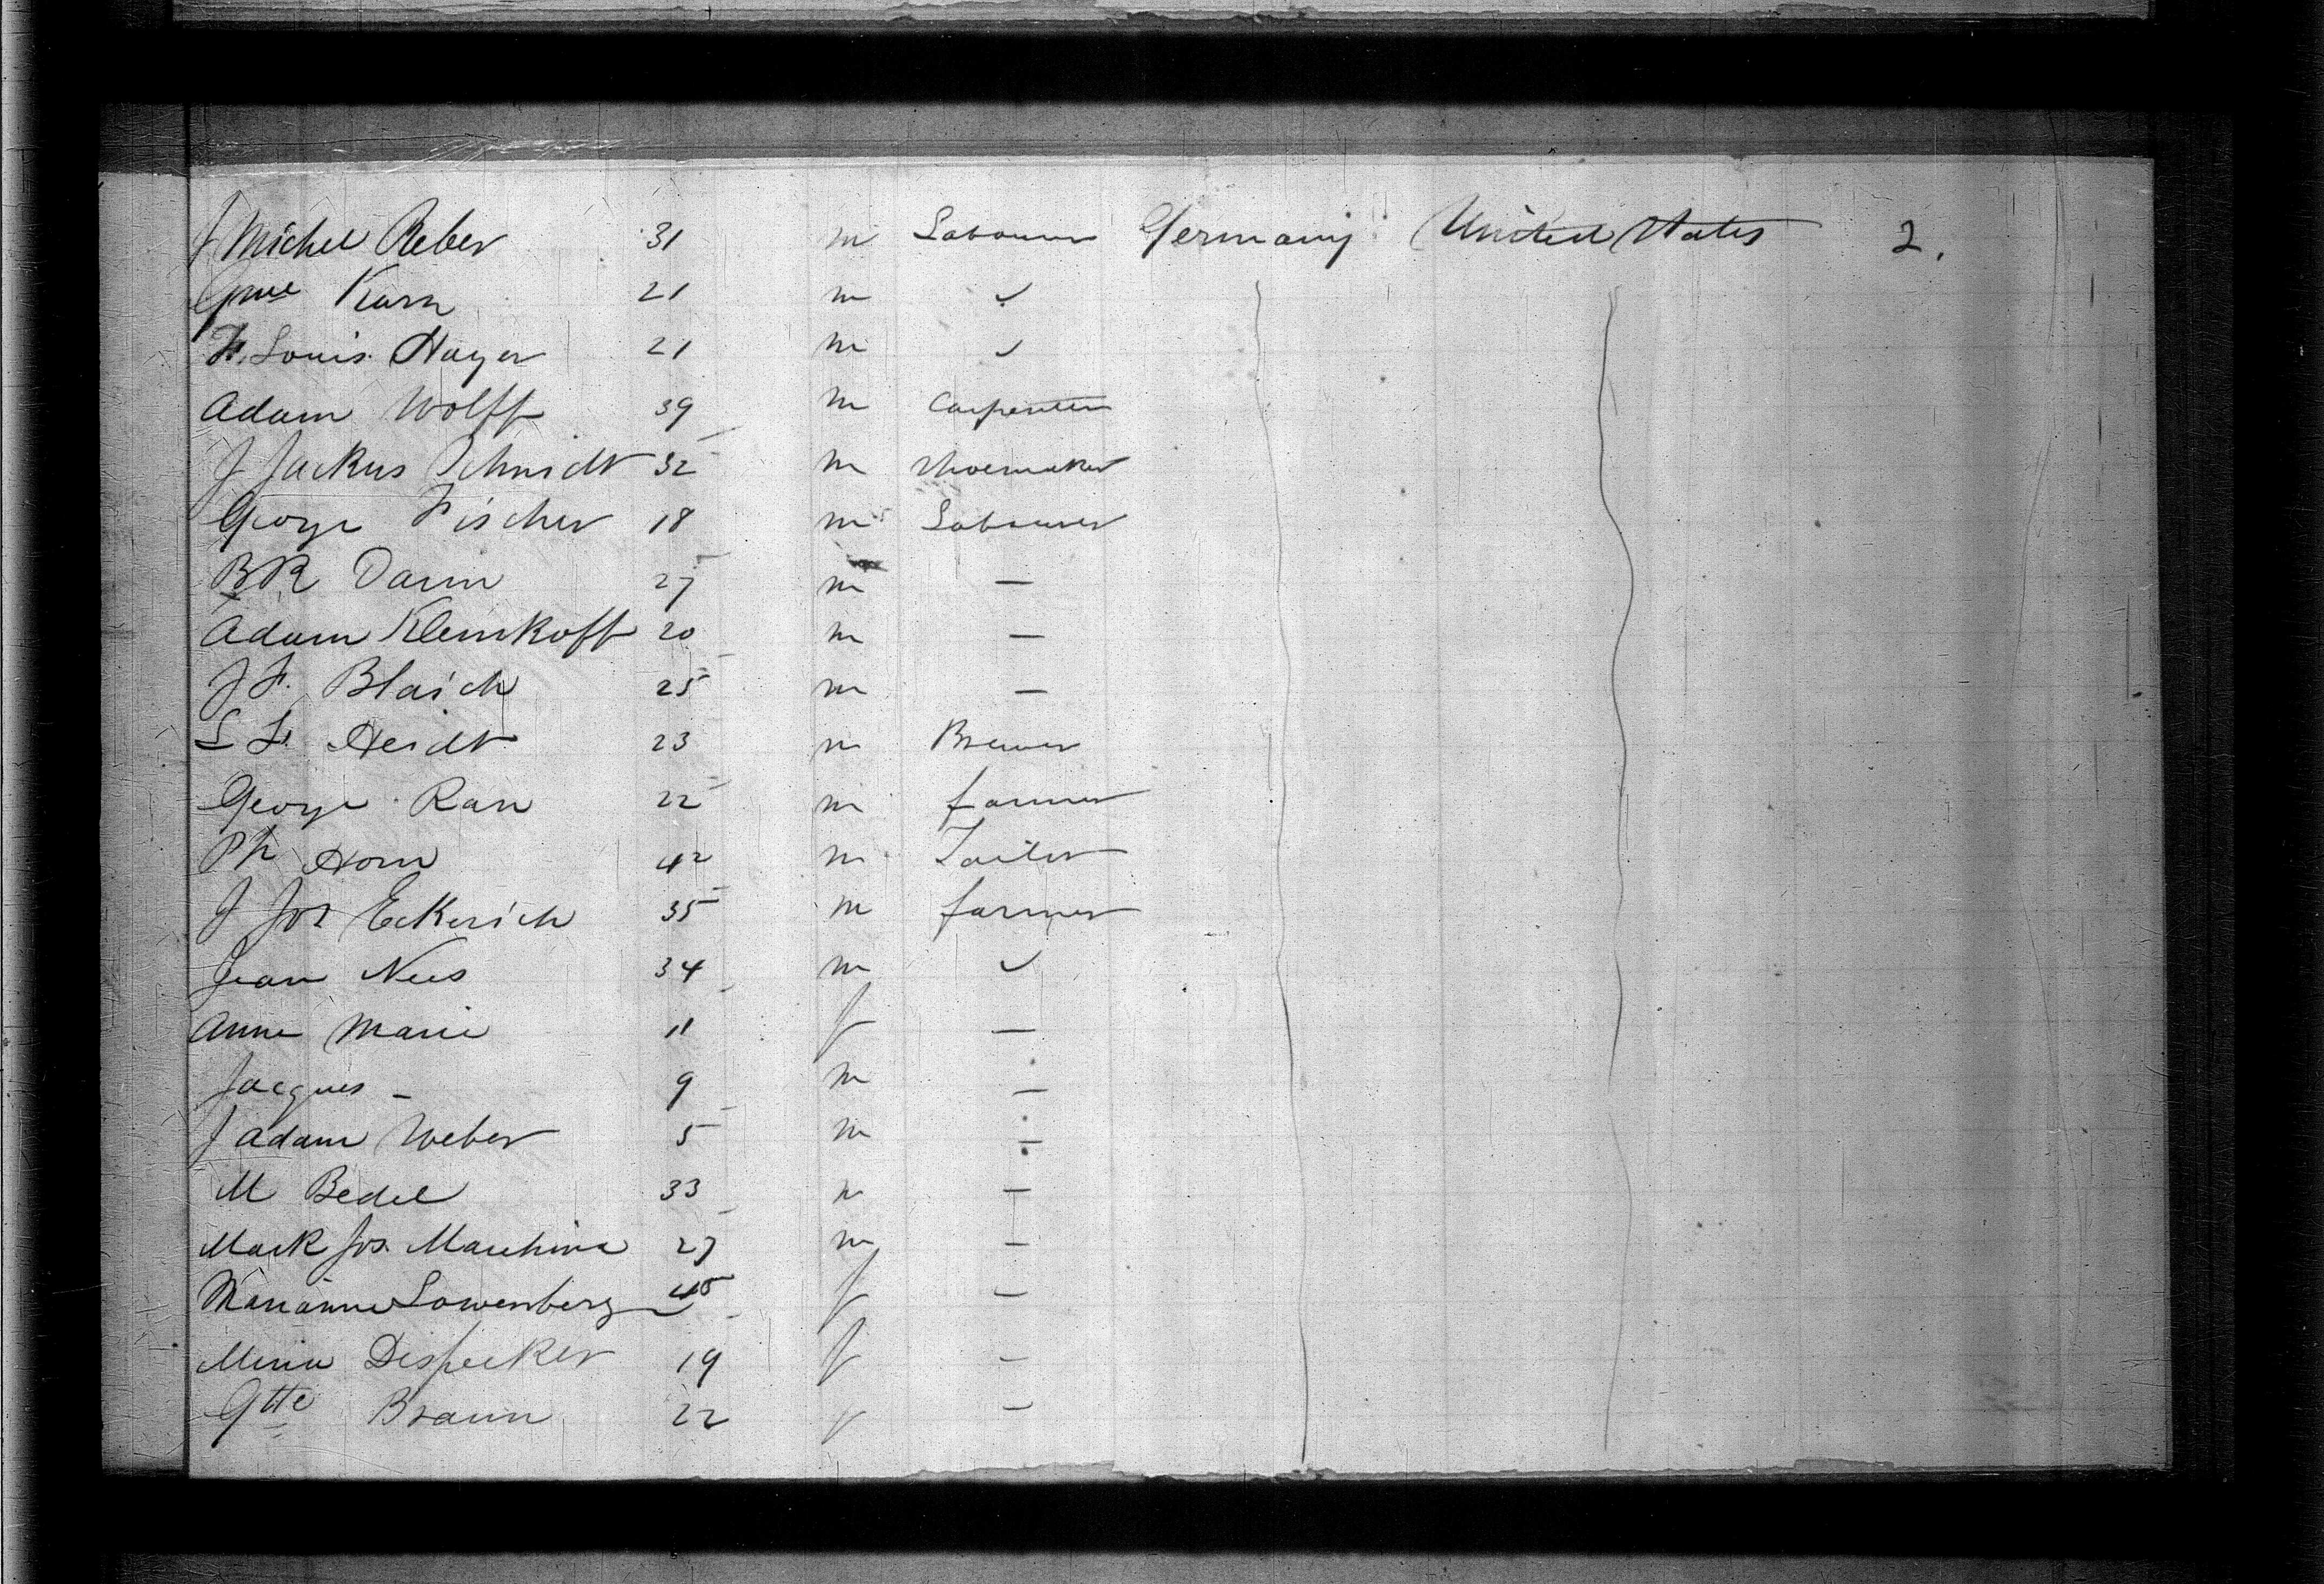 J Michel Reber 31 m Labourer Germany United States 2.
Gme Karn 21 m ✓
F. Louis Hayer 21 m ✓
Adam Wolff 39 m Carpenter
J Jackus Schmidt 32 m Shoemaker
George Fischer 18 m Labourer
BR Darm 27 m —
Adam Klemkoff 20 m —
J F. Blaich 25 m —
L F. Heidt 23 m Brewer
George Rau 22 m farmer
Ph Horn 42 m Tailor
J Jos Eckerich 35 m farmer
Jean Nees 34 m ✓
Anne Marie 11 f —
Jacques — 9 m —
J Adam Weber 5 m —
M Bedel 33 m —
Mark Jos. 27 m —
Marianne Lowenberg f —
Mina Despecker 19 f —
Gtte Braun 22 f —